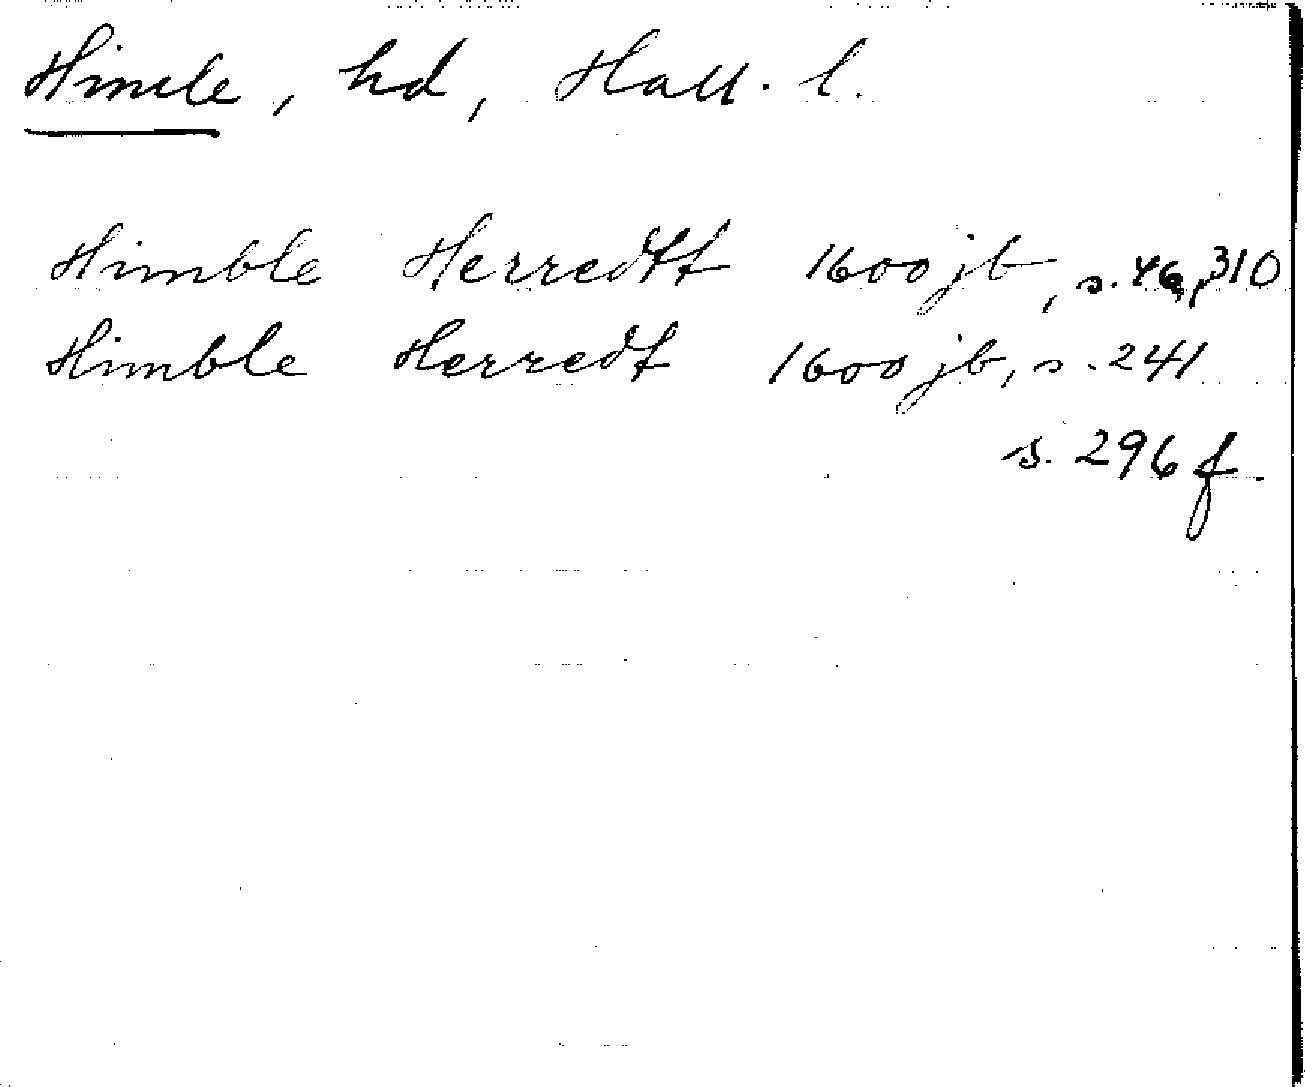 Himle, hd, Hall. l.
Himble Herredtt 1600 jb, s. 46, 310
Himble Herredt 1600 jb, s. 241
s. 296 f.